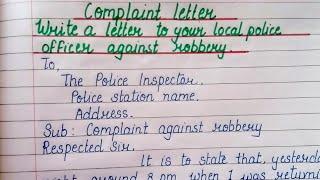 Complaint letter
Write a letter to your local police
officer against robbery.
To,
The Police Inspector.
Police station name.
Address.
Sub: Complaint against robbery
Respected Sir,
It is to state that, yesterday
around 8 pm when I was returni